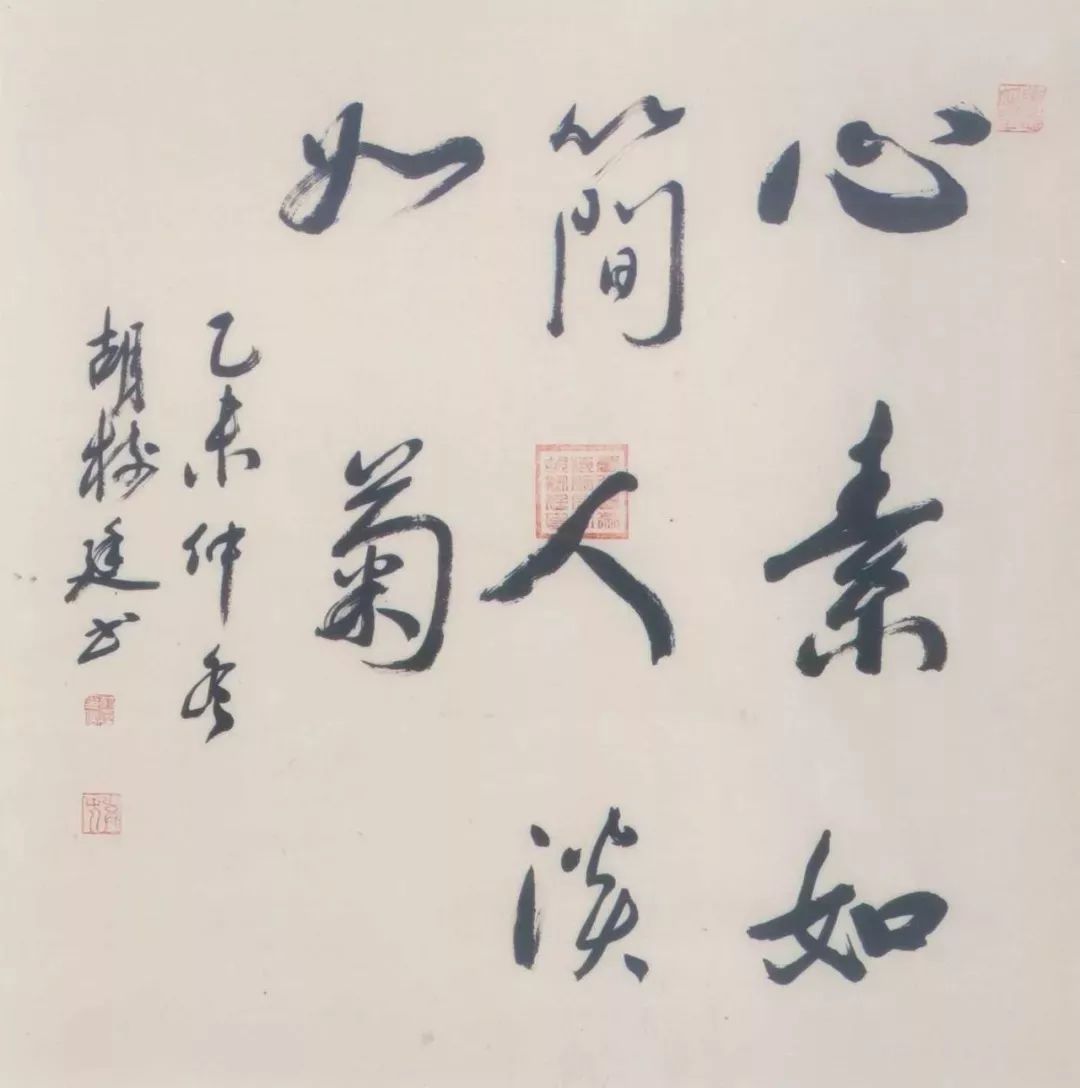 心素如
簡人淡
如菊
乙未仲冬
胡樹廷书